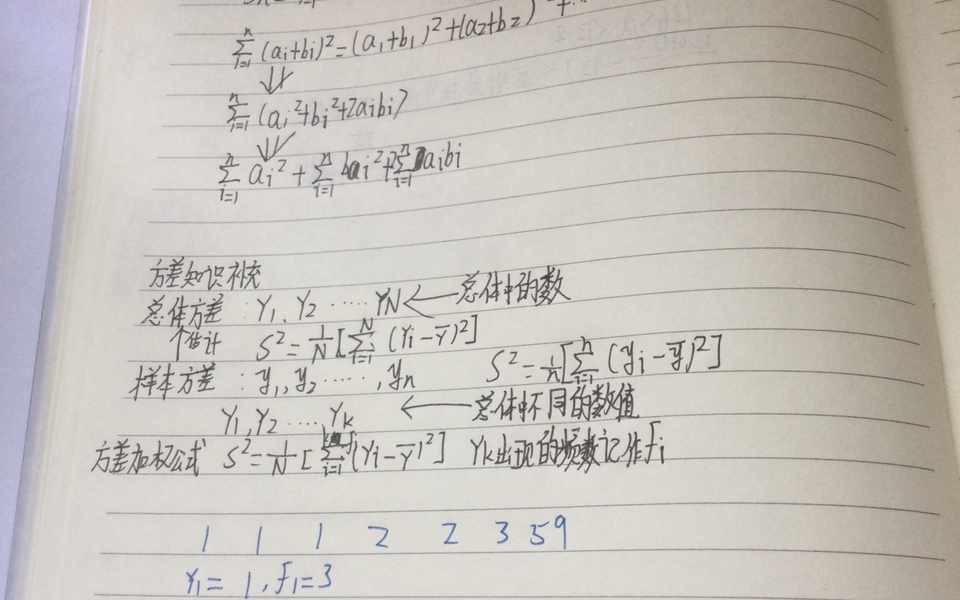 ∑_{i=1}^{n} (ai+bi)²=(a₁+b₁)²+(a₂+b₂)
⇓
∑_{i=1}^{n} (ai²+bi²+2aibi)
⇓
∑_{i=1}^{n} ai² + ∑_{i=1}^{n} bi²+2∑_{i=1}^{n} aibi
方差知识补充
总体方差: Y₁、Y₂ ····· YN ← 总体中的数
↑估计 S²=1/N[∑_{i=1}^{N} (Yi-Y̅)²]
样本方差: y₁,y₂·····,yn S²=1/n[∑_{i=1}^{n} (yi-y̅)²]
Y₁,Y₂ ····,Yk ← 总体中不同的数值
方差加权公式 S²=1/N[∑_{i=1}^{k} fi(Yi-Y̅)²] Yk出现的频数记作fi
1 1 1 2 2 3 5 9
Y₁= 1,f₁=3